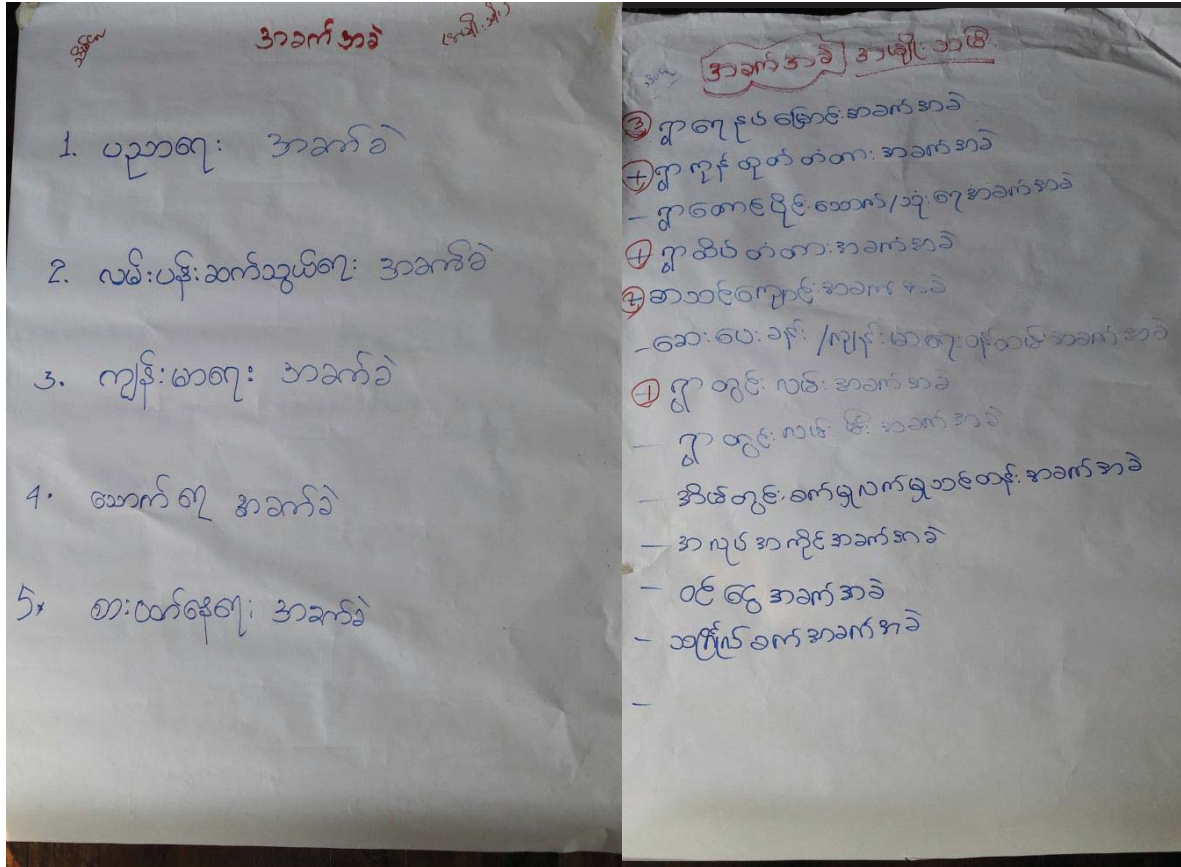 အခက်အခဲ
1. ပညာရေး အခက်ခဲ
2. လမ်းပန်းဆက်သွယ်ရေး အခက်ခဲ
3. ကျန်းမာရေး အခက်ခဲ
4. သောက်ရေ အခက်ခဲ
5. စားဝတ်နေရေး အခက်ခဲ
အခက်အခဲ အမျိုးသမီး
③ ရွာရေနုပ်မြောင်းအခက်အခဲ
ရွာကုန်ထုတ်တံတားအခက်အခဲ
- ရွာတောင်ပိုင်းသောက်/သုံးရေအခက်အခဲ
ရွာထိပ်တံတားအခက်အခဲ
② စာသင်ကျောင်းအခက်အခဲ
- ဆေးပေးခန်း/ကျန်းမာရေးဝန်ထမ်းအခက်အခဲ
① ရွာတွင်းလမ်းအခက်အခဲ
- ရွာတွင်းလမ်းမီးအခက်အခဲ
- အိမ်တွင်းစက်မှုလက်မှုသင်တန်းအခက်အခဲ
- အလုပ်အကိုင်အခက်အခဲ
- ဝင်ငွေအခက်အခဲ
- သင်္ဂြိုလ်စက်အခက်အခဲ
-